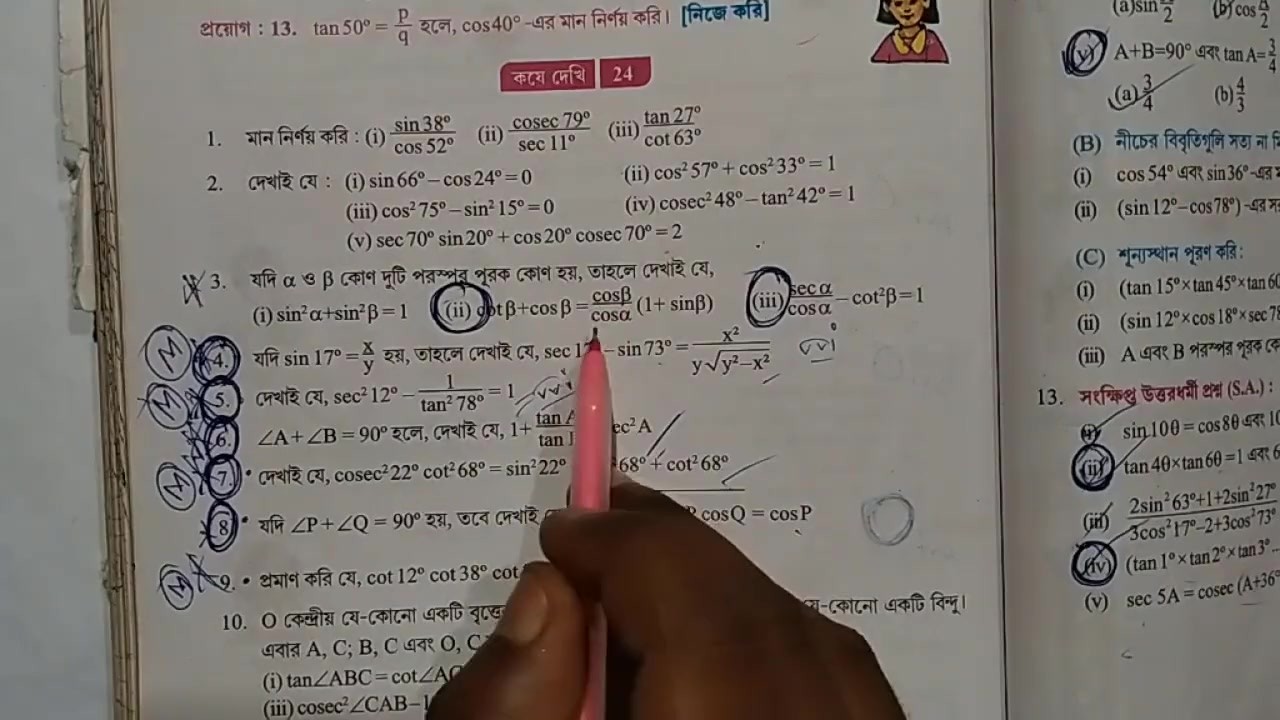 প্রয়োগ : 13. tan 50° = p/q হলে, cos 40° -এর মান নির্ণয় করি। [নিজে করি]
কষে দেখি 24
1. মান নির্ণয় করি : (i) sin 38°/cos 52° (ii) cosec 79°/sec 11° (iii) tan 27°/cot 63°
2. দেখাই যে : (i) sin 66° – cos 24° = 0 (ii) cos² 57° + cos² 33° = 1
(iii) cos² 75° – sin² 15° = 0 (iv) cosec² 48° – tan² 42° = 1
(v) sec 70° sin 20° + cos 20° cosec 70° = 2
3. যদি α ও β কোণ দুটি পরস্পর পূরক কোণ হয়, তাহলে দেখাই যে,
(i) sin²α + sin²β = 1 (ii) cotβ + cosβ = cosβ/cosα (1 + sinβ) (iii) secα/cosα – cot²β = 1
M 4. যদি sin 17° = x/y হয়, তাহলে দেখাই যে, sec 1 – sin 73° = x²/y√y²–x²
M 5. দেখাই যে, sec² 12° – 1/tan² 78° = 1
6. ∠A + ∠B = 90° হলে, দেখাই যে, 1 + tan A/tan ec²A
M 7. • দেখাই যে, cosec² 22° cot² 68° = sin² 22° 68° + cot² 68°
8 • যদি ∠P + ∠Q = 90° হয়, তবে দেখাই cosQ = cosP
M 9. • প্রমাণ করি যে, cot 12° cot 38° cot
10. O কেন্দ্রীয় যে-কোনো একটি যে-কোনো একটি বিন্দু।
এবার A, C; B, C এবং O, C
(i) tan∠ABC = cot∠
(iii) cosec²∠CAB –
(a) sin /2 (b) cos /2
(v) A+B=90° এবং tan A= 3/4
(a) 3/4 (b) 4/3
(B) নীচের বিবৃতিগুলি সত্য না
(i) cos 54° এবং sin 36° -এর
(ii) (sin 12° – cos 78°) -এর
(C) শূন্যস্থান পূরণ করি :
(i) (tan 15° × tan 45° × tan 60
(ii) (sin 12° × cos 18° × sec 78
(iii) A এবং B পরস্পর পূরক
13. সংক্ষিপ্ত উত্তরধর্মী প্রশ্ন (S.A.) :
(i) sin 10θ = cos 8θ এবং 10
(ii) tan 4θ × tan 6θ = 1 এবং 6
(iii) 2sin² 63° + 1 + 2sin² 27°/3cos² 17° – 2 + 3cos² 73°
(iv) (tan 1° × tan 2° × tan 3°
(v) sec 5A = cosec (A + 36°